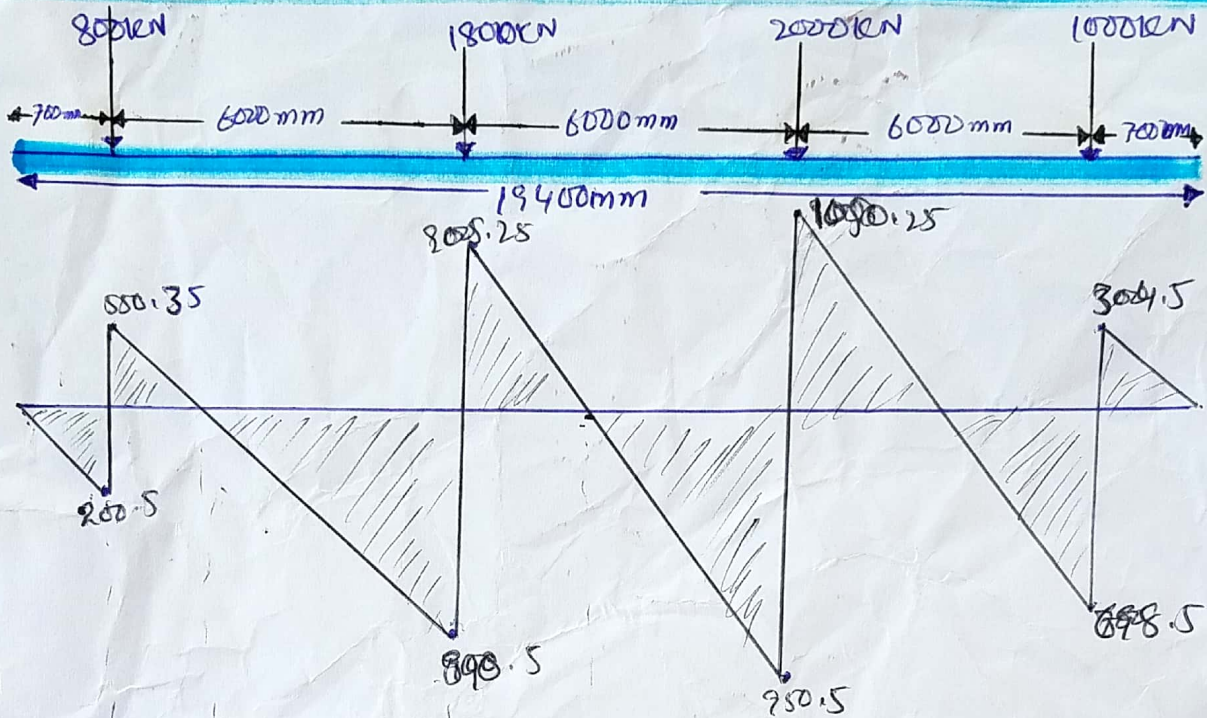 800KN 1800KN 2000KN 1000KN
700mm 6000mm 6000mm 6000mm 700mm
19400mm
.25 .25
550.35 304.5
200.5
.5 698.5
950.5